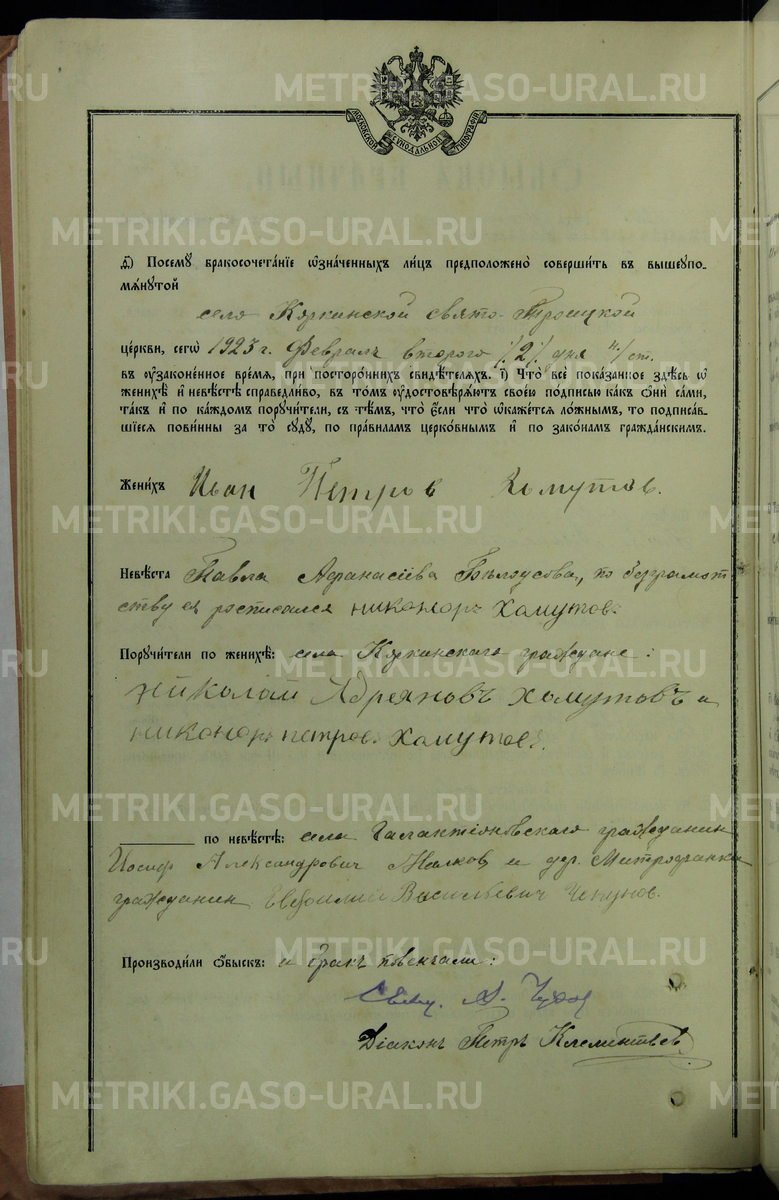 МОСКОВСКОЙ СѴНОДАЛЬНОЙ ТИПОГРАФІИ
д҃) Посемꙋ бракосочета́нїе ѡзна́ченныхъ ли́цъ предположено̀ соверши́ть въ вышеꙋпо-
мѧ́нꙋтой
село Кяркинской свято-Троицкой
це́ркви, сегѡ̀ 1923 г. Февраля второго /2/ дня н/ст.
въ ᲂу҆зако́ненное вре́мѧ, при посторо́ннихъ свидѣ́телѧхъ. і҃) Что̀ всѐ пока́занное здѣ́сь ѡ҆
женихѣ̀ и҆ невѣ́стѣ справедли́во, въ то́мъ ᲂу҆достовѣрѧ́ютъ свое́ю по́дписью ка́къ ѻ҆нѝ са́ми,
та́къ и҆ по ка́ждомъ порꙋчи́тели, съ тѣ́мъ, что̀ є҆́сли что̀ ѡ҆ка́жетсѧ ло́жнымъ, то подписа́в-
шїесѧ пови́нны за то̀ сꙋдꙋ̀, по пра́виламъ церко́внымъ и҆ по зако́намъ гражда́нскимъ.
Жени́хъ Иван Петров Хомутов.
Невѣ́ста Павла Афанасіева Бѣлоусова, по безграмот
ству ея росписался никонорь Хомутовъ
Порꙋчи́тели по женихѣ̀: села Кяркинского граждане:
николай Адреяновъ хомутовъ и
никоноръ петровъ Хомутовъ.
по невѣ́стѣ: села Галактіоновского гражданин
Иосиф Александрович и дер.
гражданин Евфимий Васильевич Чекунов.
Производи́ли ѻ҆́быскъ: и бракъ повенчали:
Свящ. А.
Діаконъ Петръ Клементьев
METRIKI.GASO-URAL.RU